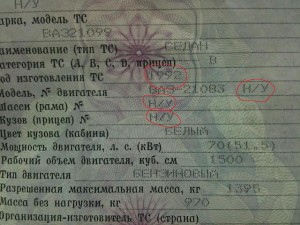 Н/У
Марка, модель ТС
ВАЗ21099
Наименование (тип ТС) СЕДАН
Категория ТС (А, В, С, D, прицеп) В
Год изготовления ТС 1992
Модель, № двигателя ВАЗ-21083 Н/У
Шасси (рама) № Н/У
Кузов (прицеп) № Н/У
Цвет кузова (кабины) БЕЛЫЙ
Мощность двигателя, л. с. (кВт) 70(51.5)
Рабочий объем двигателя, куб. см 1500
Тип двигателя БЕНЗИНОВЫЙ
Разрешенная максимальная масса, кг 1395
Масса без нагрузки, кг 970
Организация-изготовитель ТС (страна)